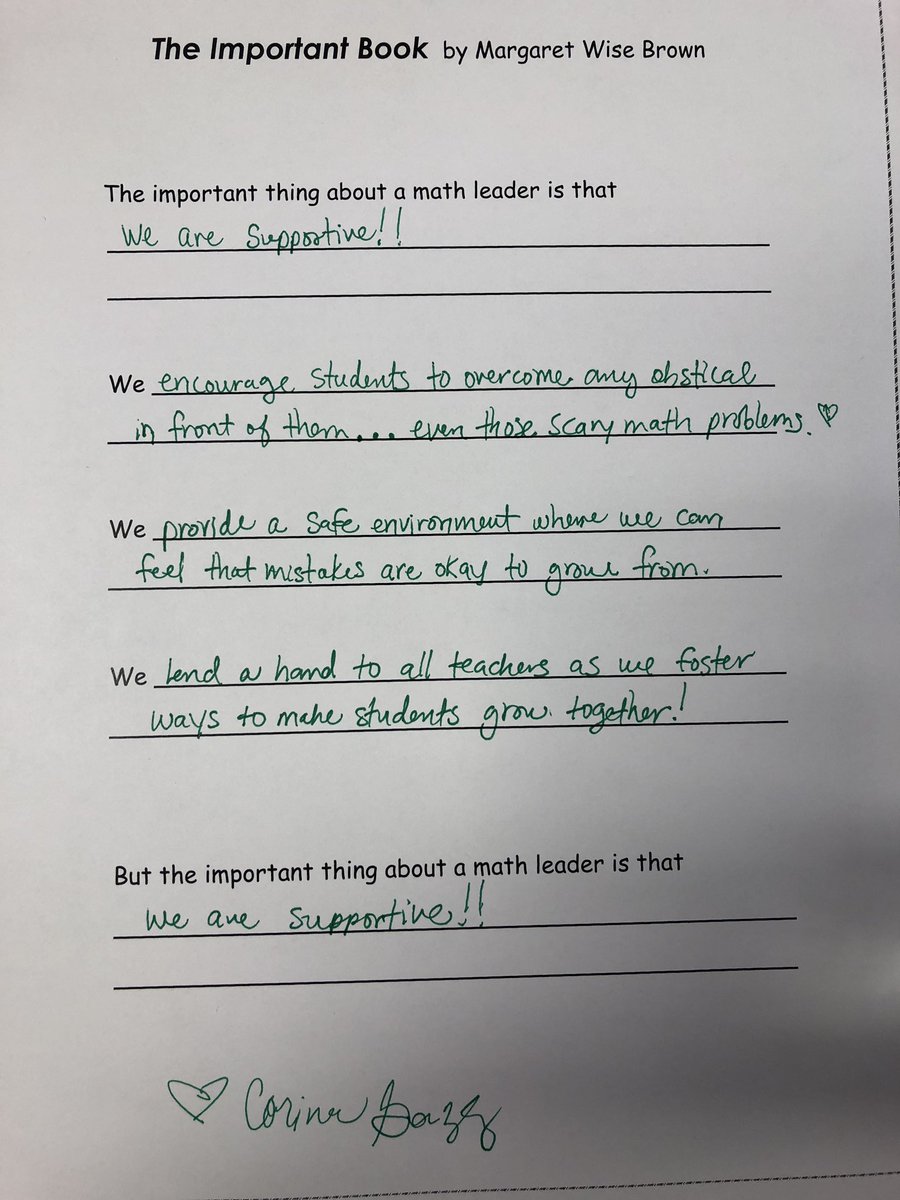 The Important Book by Margaret Wise Brown
The important thing about a math leader is that
We are Supportive!!
We encourage students to overcome any obstical
in front of them... even those scary math problems.
We provide a safe environment where we can
feel that mistakes are okay to grow from.
We lend a hand to all teachers as we foster
ways to make students grow together!
But the important thing about a math leader is that
We are supportive!!
Corina